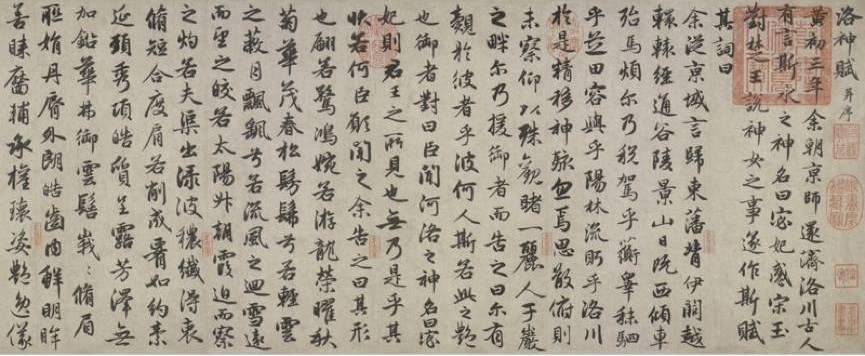 洛神賦 并序
黃初三年余朝京師還濟洛川古人
有言斯水之神名曰宓妃感宋玉
對楚王說神女之事遂作斯賦
其詞曰
余從京域言歸東藩背伊闕越
轘轅經通谷陵景山日既西傾車
殆馬煩尔乃稅駕乎蘅皋秣駟
乎芝田容與乎陽林流眄乎洛川
於是精移神駭忽焉思散俯則
未察仰以殊觀睹一麗人于巖
之畔尔乃援御者而告之曰尔有
覿於彼者乎彼何人斯若此之艷
也御者對曰臣聞河洛之神名曰宓
妃則君王之所見也無乃是乎其
狀若何臣願聞之余告之曰其形
也翩若驚鴻婉若游龍榮曜秋
菊華茂春松髣髴兮若輕雲
之蔽月飄颻兮若流風之迴雪遠
而望之皎若太陽升朝霞迫而察
之灼若夫渠出淥波穠纖得衷
脩短合度肩若削成腰如約素
延頸秀項皓質呈露芳澤無
加鉛華弗御雲髻峩〻脩眉
聯娟丹脣外朗皓齒內鮮明眸
善睞靨輔承權瓌姿艷逸儀